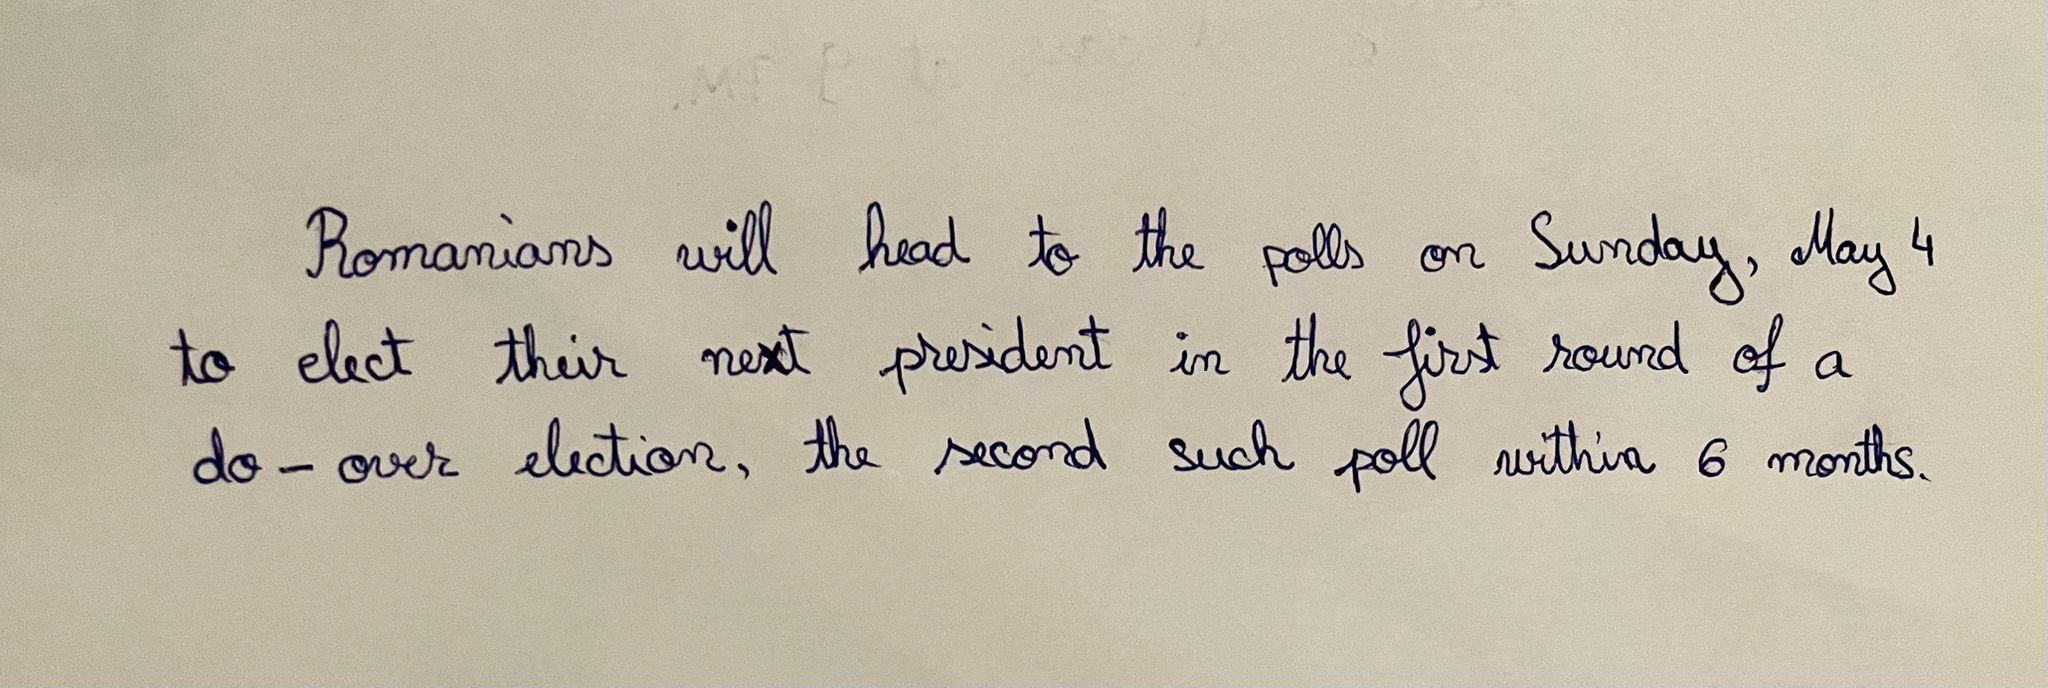 Romanians will head to the polls on Sunday, May 4
to elect their next president in the first round of a
do-over election, the second such poll within 6 months.